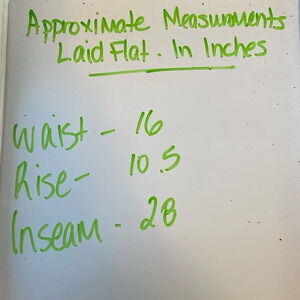 Approximate Measurments
Laid Flat. In Inches
Waist - 16
Rise - 10.5
Inseam - 28